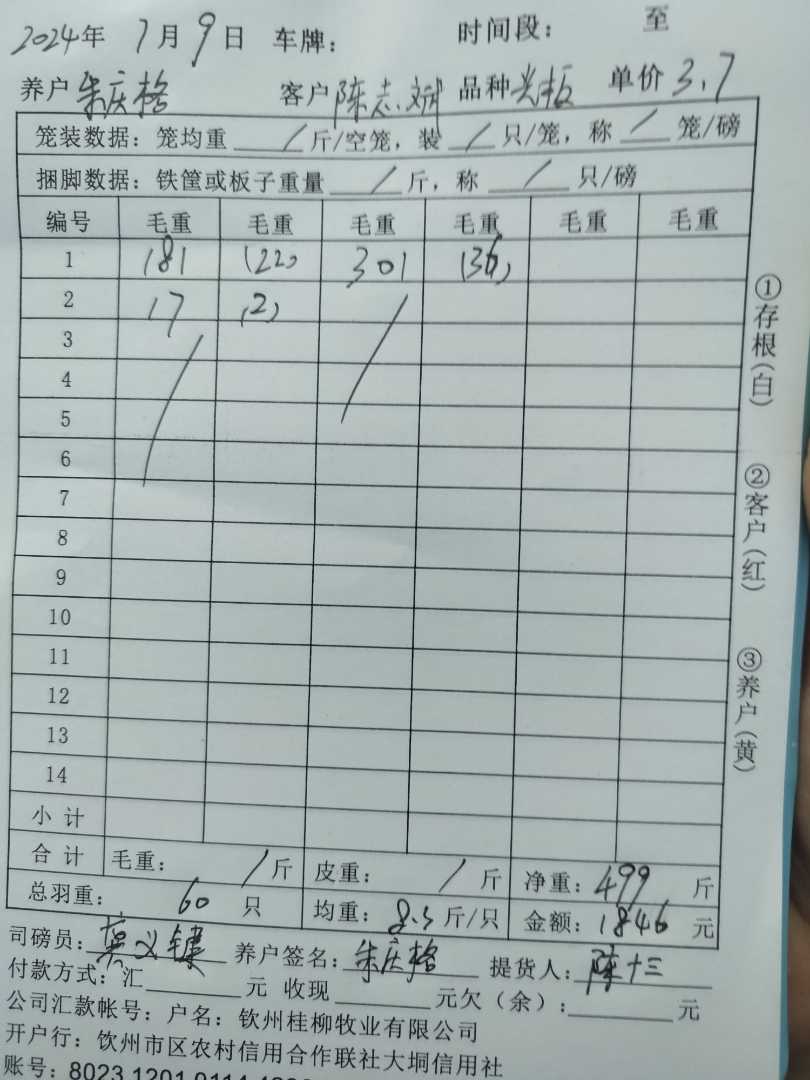 2024年 7月9日 车牌: 时间段: 至
养户 朱庆格 客户 陈志斌 品种 光板 单价 3.7
笼装数据: 笼均重 / 斤/空笼, 装 / 只/笼, 称 / 笼/磅
捆脚数据: 铁筐或板子重量 / 斤, 称 / 只/磅
编号 毛重 毛重 毛重 毛重 毛重 毛重
1 181 (22) 301 (36)
2 17 (2)
3
4
5
6
7
8
9
10
11
12
13
14
小计
合计 毛重: / 斤 皮重: / 斤 净重: 499 斤
总羽重: 60 只 均重: 8.3 斤/只 金额: 1846 元
司磅员: 义 养户签名: 朱庆格 提货人: 陈十三
付款方式: 汇 元 收现 元欠(余): 元
公司汇款帐号: 户名: 钦州桂柳牧业有限公司
开户行: 钦州市区农村信用合作联社大垌信用社
账号: 8023 1201 0114
①存根(白)
②客户(红)
③养户(黄)